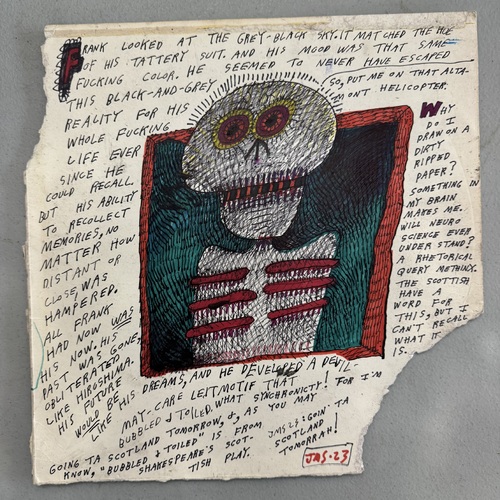 FRANK LOOKED AT THE GREY-BLACK SKY. IT MATCHED THE HUE
OF HIS TATTERY SUIT. AND HIS MOOD WAS THAT SAME
FUCKING COLOR. HE SEEMED TO NEVER HAVE ESCAPED
THIS BLACK-AND-GREY
REALITY FOR HIS
WHOLE FUCKING
LIFE EVER
SINCE HE
COULD RECALL.
BUT HIS ABILITY
TO RECOLLECT
MEMORIES, NO
MATTER HOW
DISTANT OR
CLOSE, WAS
HAMPERED.
ALL FRANK
HAD NOW WAS
HIS NOW. HIS
PAST WAS GONE,
OBLITERATED
LIKE HIROSHIMA.
HIS FUTURE
WOULD BE
LIKE HIS DREAMS, AND HE DEVELOPED A DEVIL-
MAY-CARE LEITMOTIF THAT
BUBBLED & TOILED. WHAT SYNCHRONICITY! FOR I'M
GOING TA SCOTLAND TOMORROW, &, AS YOU MAY
KNOW, "BUBBLED & TOILED" IS FROM
SHAKESPEARE'S SCOT-
TISH PLAY.
SO, PUT ME ON THAT ALTA-
MONT HELICOPTER.
WHY
DO I
DRAW ON A
DIRTY
RIPPED
PAPER?
SOMETHING IN
MY BRAIN
MAKES ME.
WILL NEURO
SCIENCE EVER
UNDERSTAND?
A RHETORICAL
QUERY METHINX.
THE SCOTTISH
HAVE A
WORD FOR
THIS, BUT I
CAN'T RECALL
WHAT IT
IS.
JMS·23 GOIN' TA
SCOTLAND
TOMORRAH!
JMS·23